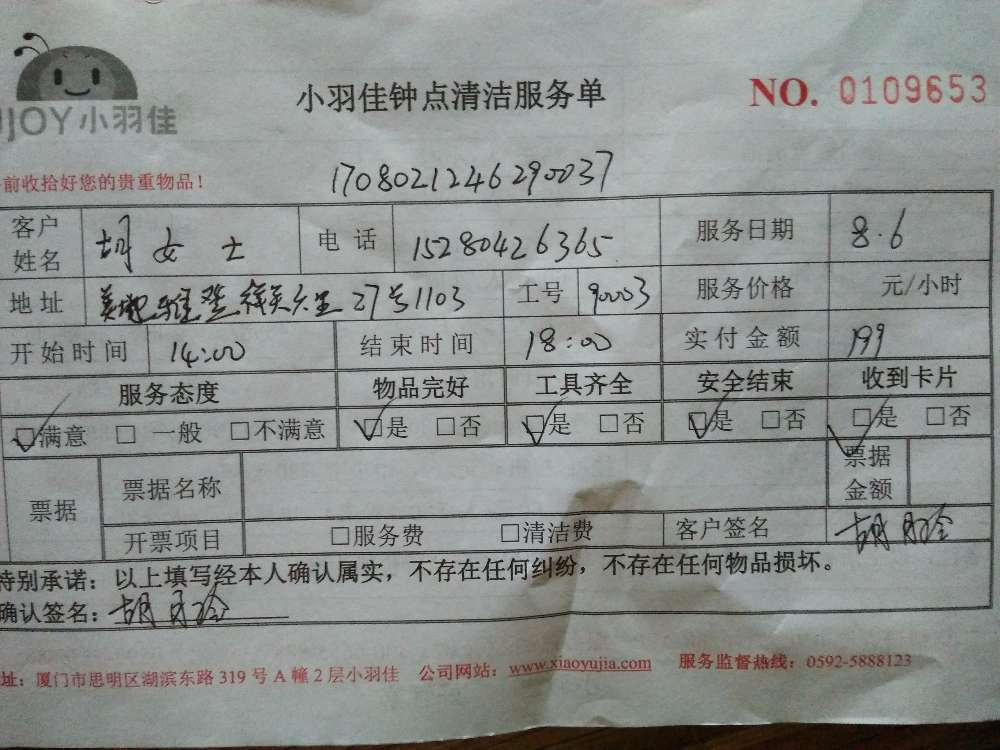 JOY小羽佳
小羽佳钟点清洁服务单
NO. 0109653
前收拾好您的贵重物品！
170802124629 0037
客户姓名 胡女士 电话 15280426365 服务日期 8.6
地址 27号1103 工号 90003 服务价格 元/小时
开始时间 14:00 结束时间 18:00 实付金额 199
服务态度 物品完好 工具齐全 安全结束 收到卡片
☑满意 □一般 □不满意 ☑是 □否 ☑是 □否 ☑是 □否 ☑是 □否
票据 票据名称 票据金额
开票项目 □服务费 □清洁费 客户签名 胡月玲
特别承诺：以上填写经本人确认属实，不存在任何纠纷，不存在任何物品损坏。
确认签名：胡月玲
址：厦门市思明区湖滨东路 319 号 A 幢 2 层小羽佳 公司网站：www.xiaoyujia.com 服务监督热线：0592-5888123